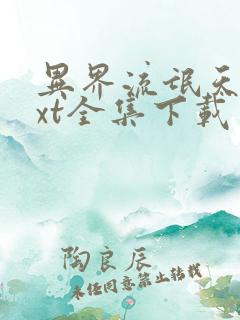 異界流氓天
xt全集下載
陶良辰
未经同意禁止转载